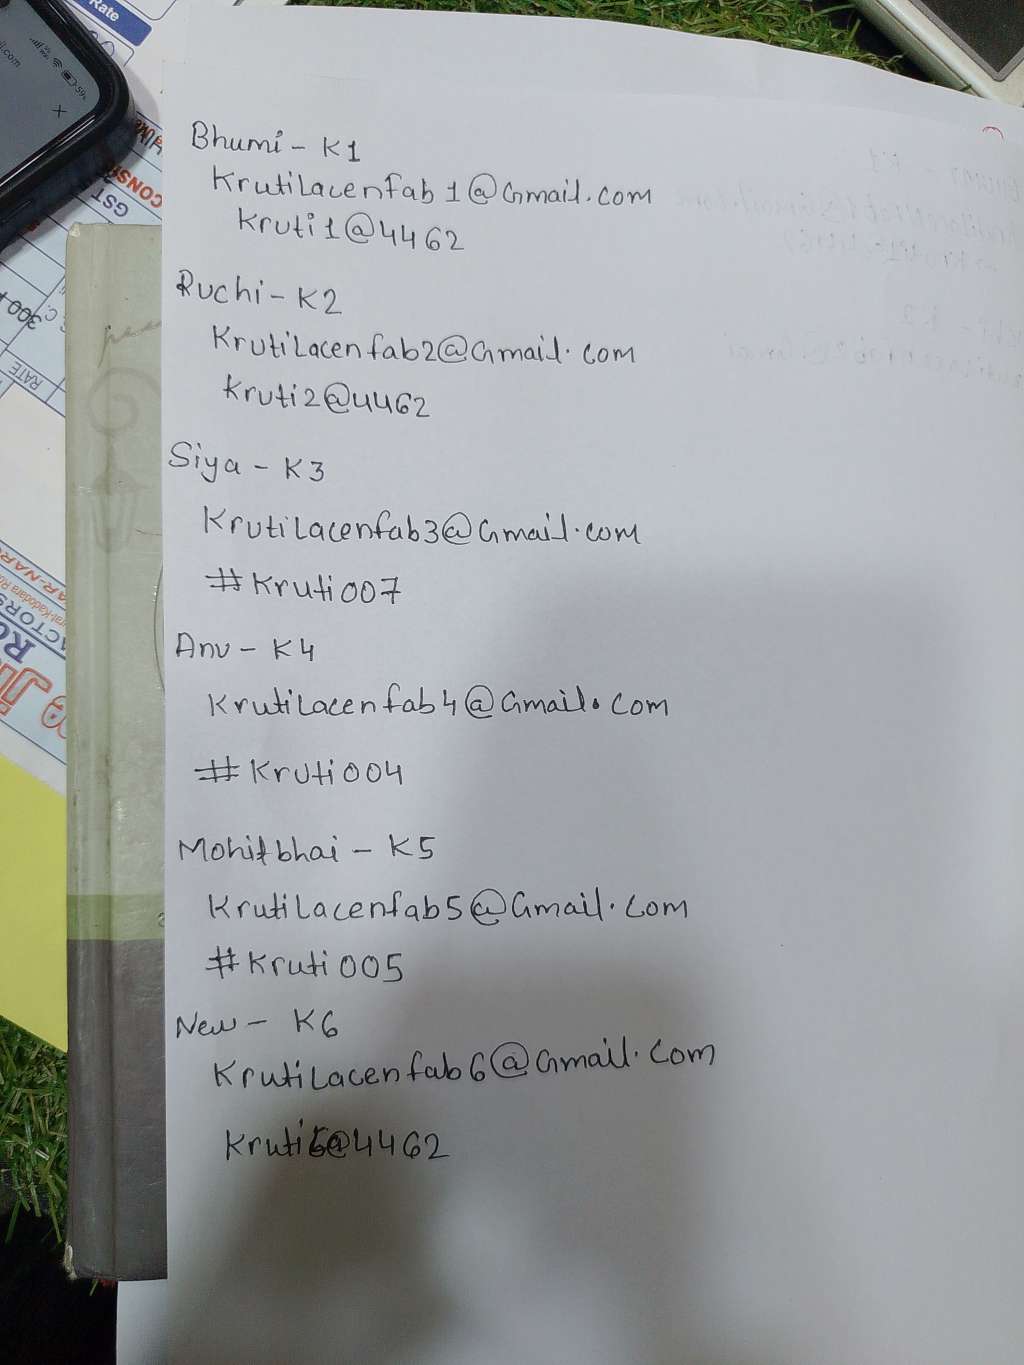 Rate
GST
300+
RATE
Bhumi - K1
Krutilacenfab1@Gmail.com
Kruti1@4462
Ruchi - K2
Krutilacenfab2@Gmail.com
Kruti2@4462
Siya - K3
Krutilacenfab3@Gmail.com
#Kruti007
Anu - K4
Krutilacenfab4@Gmail.com
#Kruti004
Mohitbhai - K5
Krutilacenfab5@Gmail.com
#Kruti005
New - K6
Krutilacenfab6@Gmail.com
Kruti6@4462